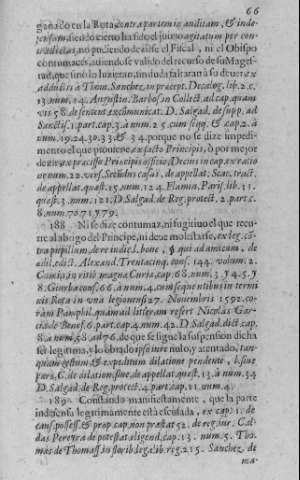 66
ganado en la Rota, contra partem inauditam, & inde-
fensam, siendo cierto ha sido el juizio agitatum per con-
tradictas, no pudiendo dezirse el Fiscal, ni el Obispo
contumaces, atiendose valido del recurso de su Magest-
ad, que sino lo hizieran, sin duda faltaran à su deuer ex
additis à Thom. Sanchez, in præcept. Decalog. lib. 2. c.
13. num. 14. Augustin. Barbos. in Collect. ad cap. quam
vis 58. de sentent. excõmunicat. D. Salgad. de supp. ad
Sanctiss. 1. part. cap. 3. à num. 25. cum seqq. & cap. 2. à
num. 19. 24. 30. 33. & 34. porque no se dize impedi-
mento el que prouiene ex facto Principis, ò por mejor
dezir ex præcisso Principis officio, Decius in cap. ex ratio
ne num. 22. vers. Secũdus casus, de appellat. Scac. tract.
de appellat. quæst. 15. num. 124. Flamin. Paris. lib. 11.
quæst. 3. num. 121. D. Salgad. de Reg. protect. 2. part. c.
8. num. 70. 71. 79.
188 Ni se dize contumaz, ni fugitiuo el que recu-
rre al abrigo del Principe, ni deue molestarse, ex leg.
pupillum, de re iudic. l. hoc, § qui ad amicum, de
ædil. edict. Alexand. Trentacinq. cons. 144. volum. 2.
Camin. in ritib magna Curiæ, cap. 68. num. 3. 4. 5. y
8. Giurba cons. 66. à num. 4. cum sequentibus in termi
nis Rota in vna legionensi 27. Nouembris 1592. co-
ràm Pamphil. quam ad litteram refert Nicolàs Gar-
cia de Benef. 6. part. cap. 4. num. 42. D. Salgad. dict. cap.
8. à num. 58. ad 76. de que se sigue la suspension dicha
ser legitima, y lo obrado ipso iure nulo, y atentado, tan-
quam gestum, & expeditum dilatione pendente, l. siue
pars, C. de dilation. sine, de appellat. quæst. 13. à num. 34
D. Salgad. de Reg. protect. 4. part. cap. 11. num. 4.
189 Constando manifiestamente, que la parte
indefensa legitimamente està escusada, ex cap. 11. de
caus. possess. & prop. cap. non præstat 52. de reg. iur. Cal-
das Pereyra de potestat. eligend. cap. 13. num. 5. Tho-
màs de Thomass. in florib. legal. reg. 215. Sanchez. de
ma-